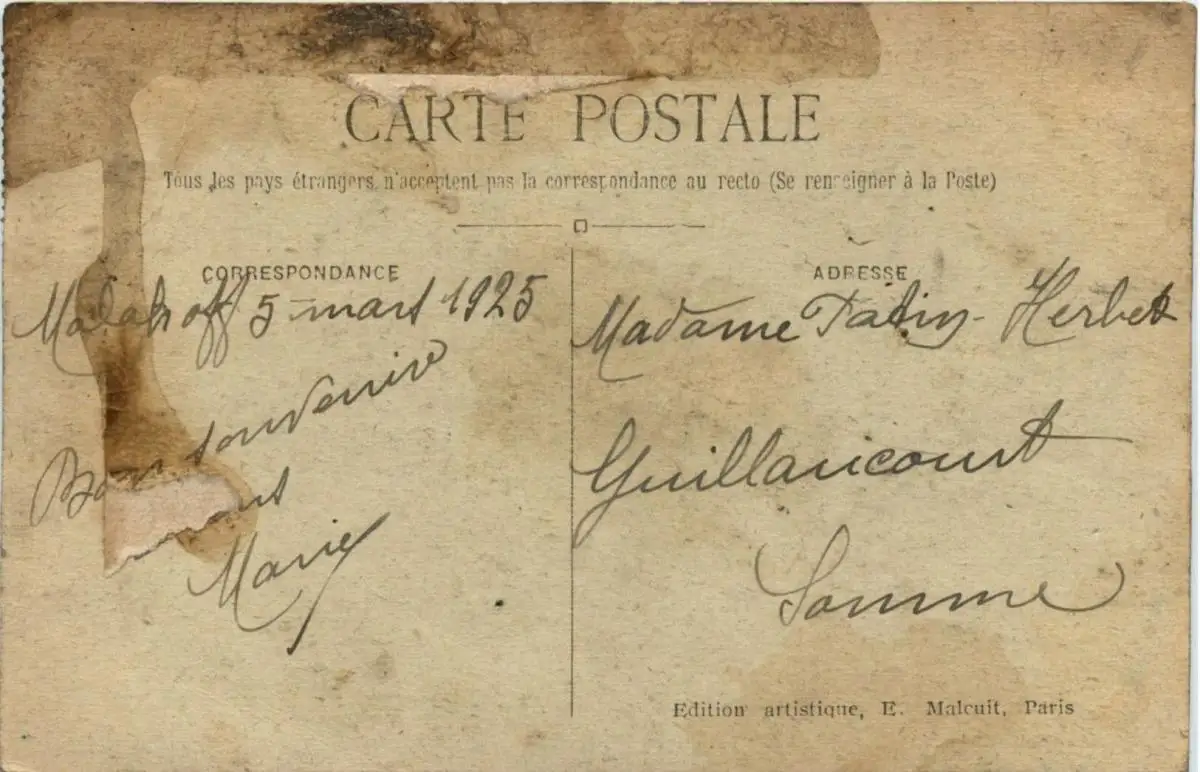 CARTE POSTALE
Tous les pays étrangers n'acceptent pas la correspondance au recto (Se renseigner à la Poste)
CORRESPONDANCE
Malakoff 5 mars 1925
Bon souvenir
Marie
ADRESSE
Madame Patin-Herbet
Guillaucourt
Somme
Edition artistique, E. Malcuit, Paris